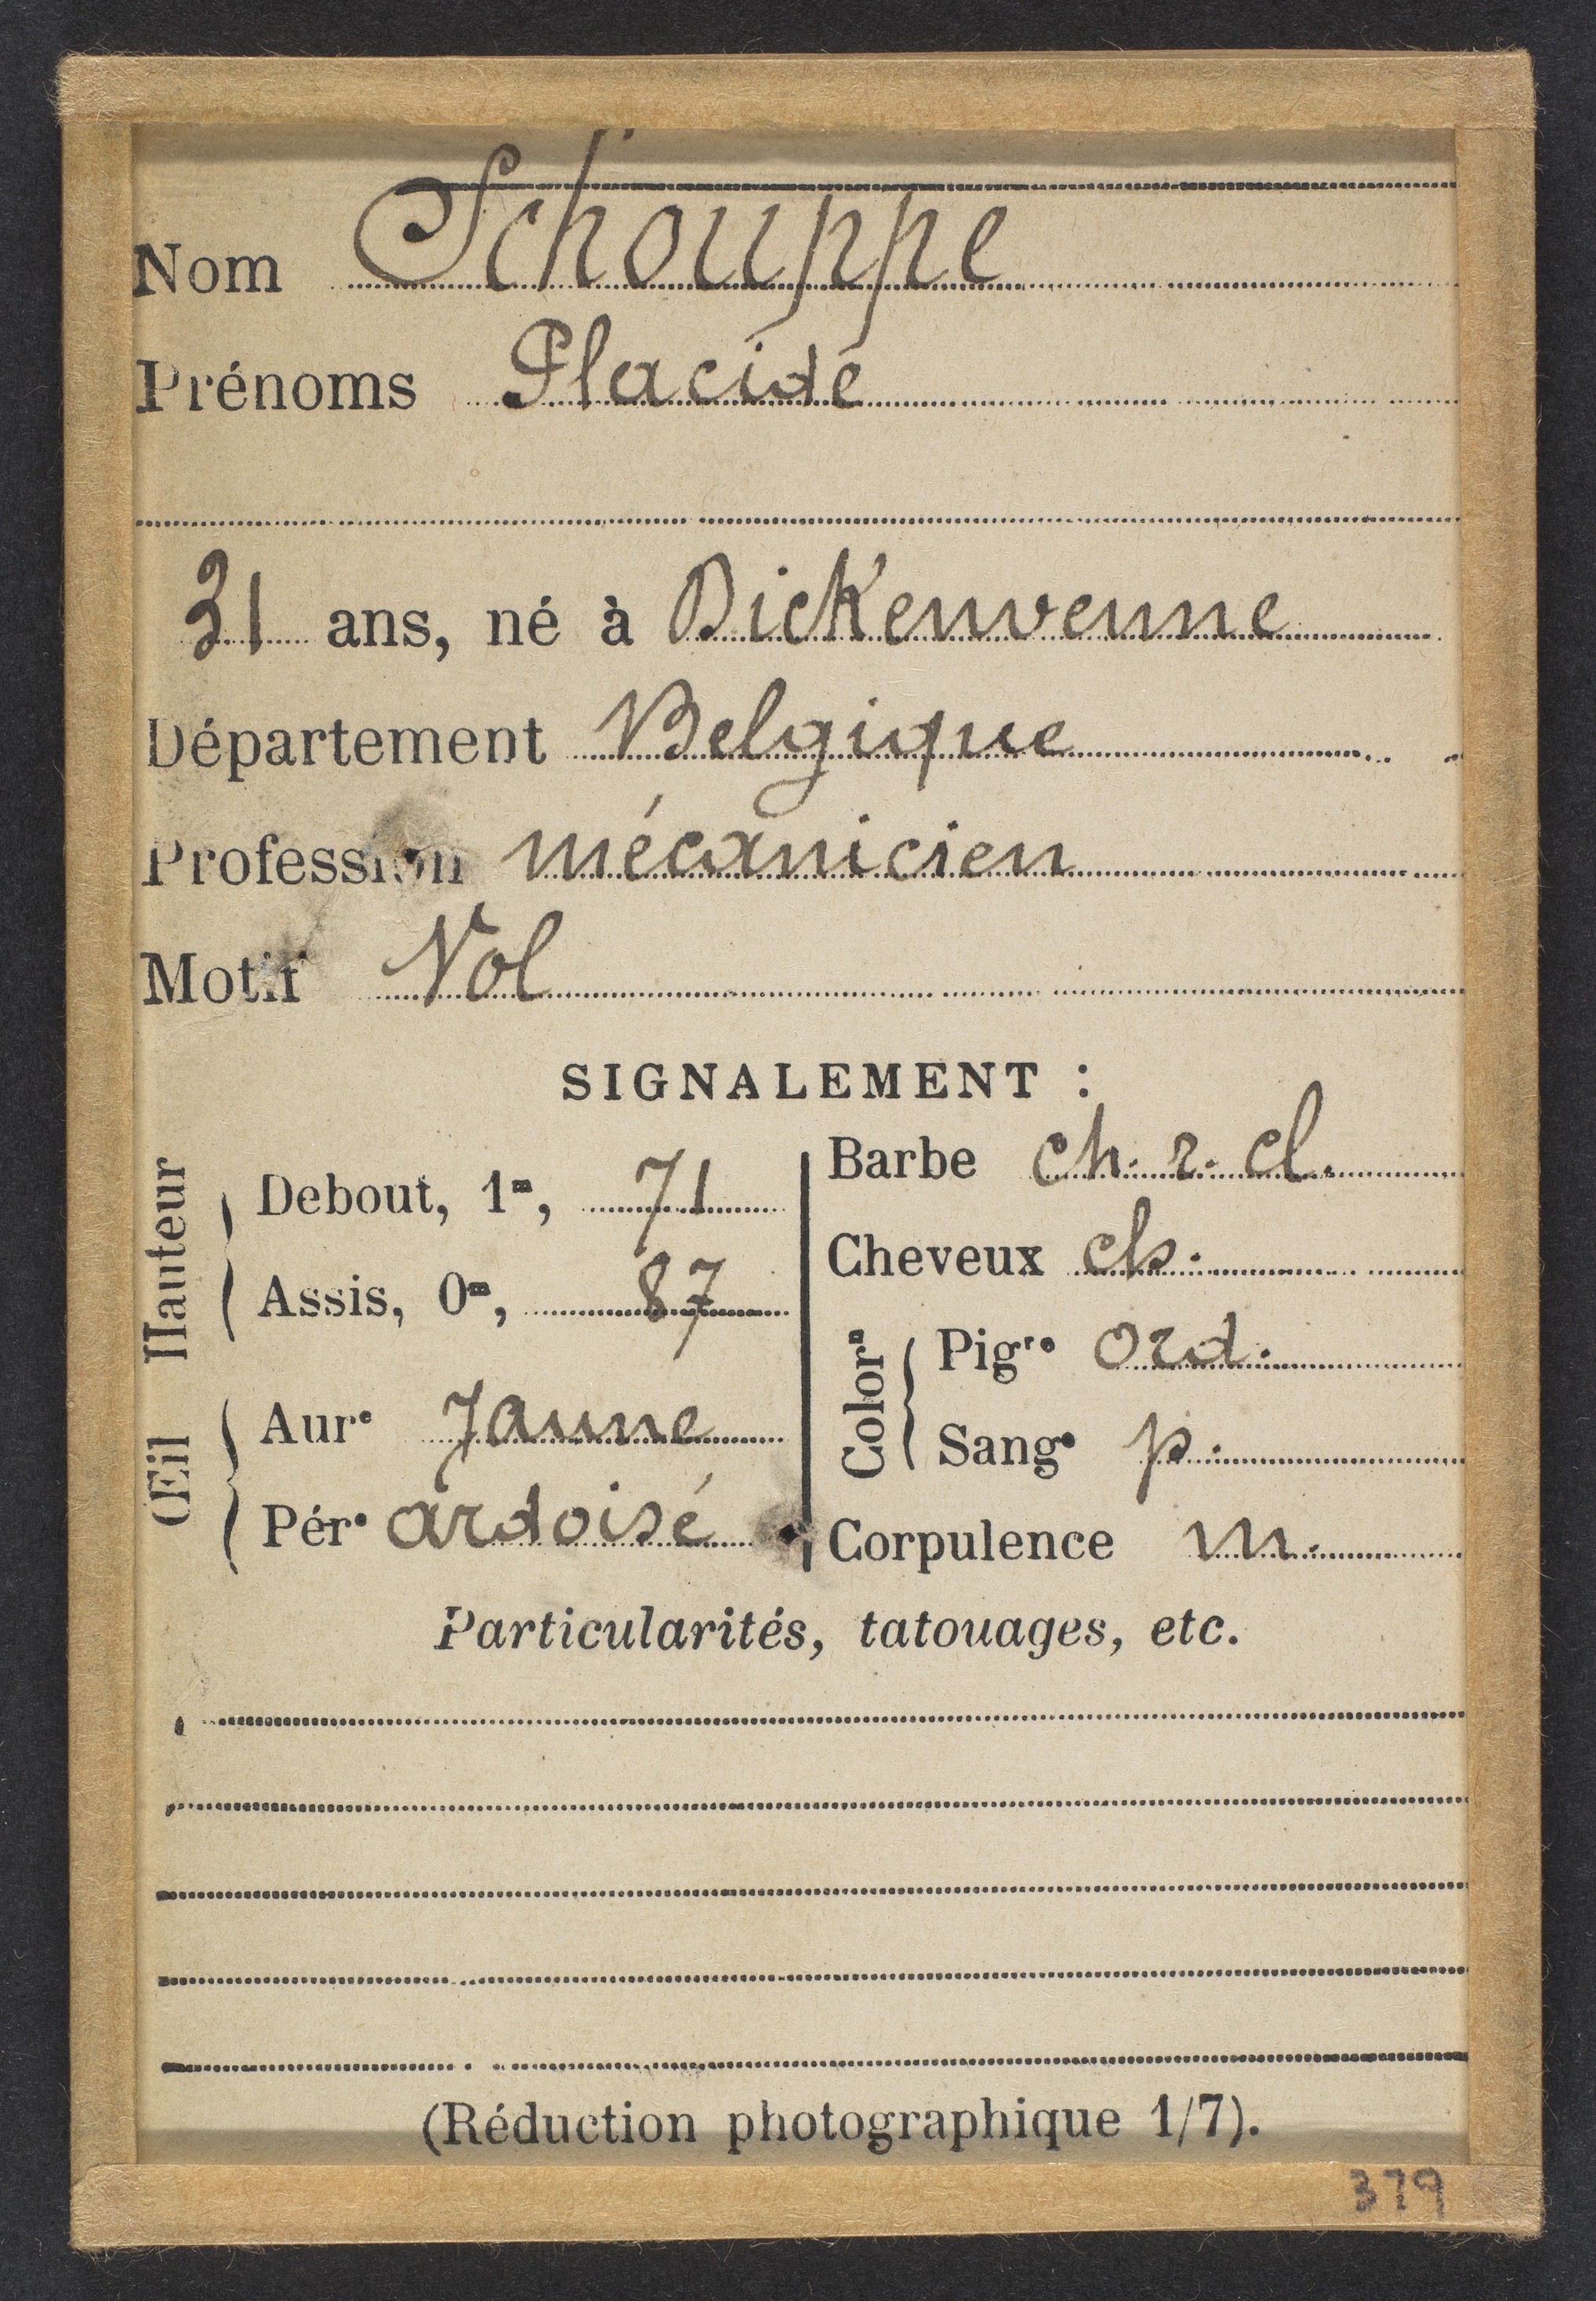 Nom Schouppe
Prénoms Placide
31 ans, né à Dickenvenne
Département Belgique
Profession mécanicien
Motif Vol
SIGNALEMENT :
Hauteur
Debout, 1ᵐ, 71
Assis, 0ᵐ, 87
Œil
Aurᵉ Jaune
Pérᵉ ardoisé
Barbe ch. r. cl.
Cheveux ch.
Colorⁿ
Pigʳᵉ ord.
Sangᵉ p.
Corpulence m.
Particularités, tatouages, etc.
(Réduction photographique 1/7).
379